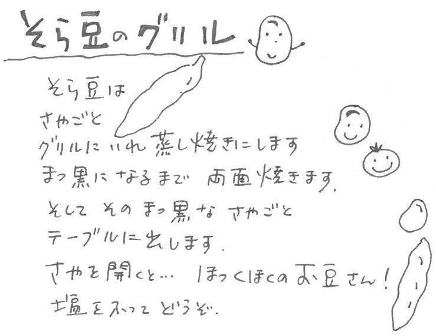 そら豆のグリル
そら豆は
さやごと
グリルにいれ 蒸し焼きにします
まっ黒になるまで 両面焼きます.
そして そのまっ黒な さやごと
テーブルに出します.
さやを開くと… ほっくほくのお豆さん!
塩をふって どうぞ.